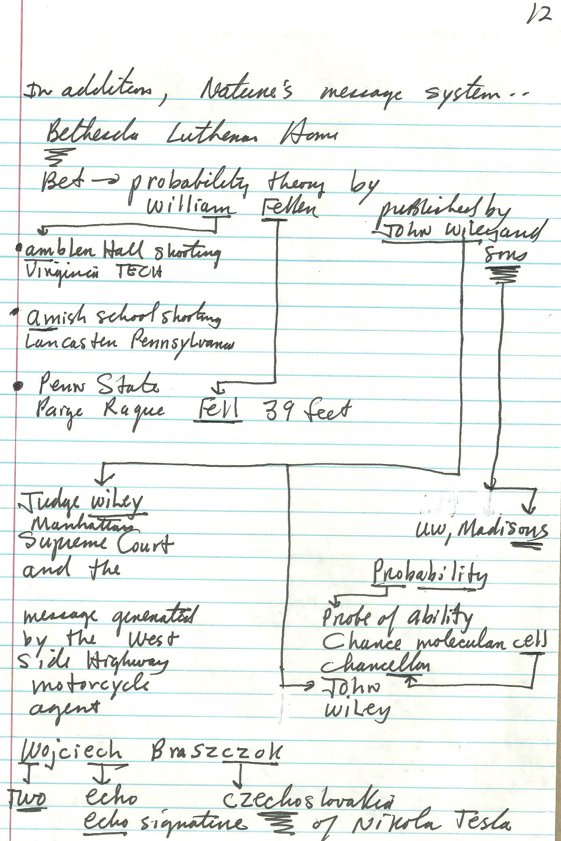 12
In addition, Nature's message system..
Bethesda Lutheran Home
Bet → probability theory by
William Feller
published by
John Wiley and
Sons
• ambler Hall shooting
Virginia TECH
• amish school shooting
Lancaster Pennsylvania
• Penn State
Paige Raque Fell 39 feet
Judge Wiley
Manhattan
Supreme Court
and the
message generated
by the West
Side Highway
motorcycle
agent
UW, Madisons
Probability
Probe of ability
Chance molecular cell
chancellor
John
Wiley
Wojciech Braszczok
TWO echo czechoslovakia
echo signature of Nikola Tesla